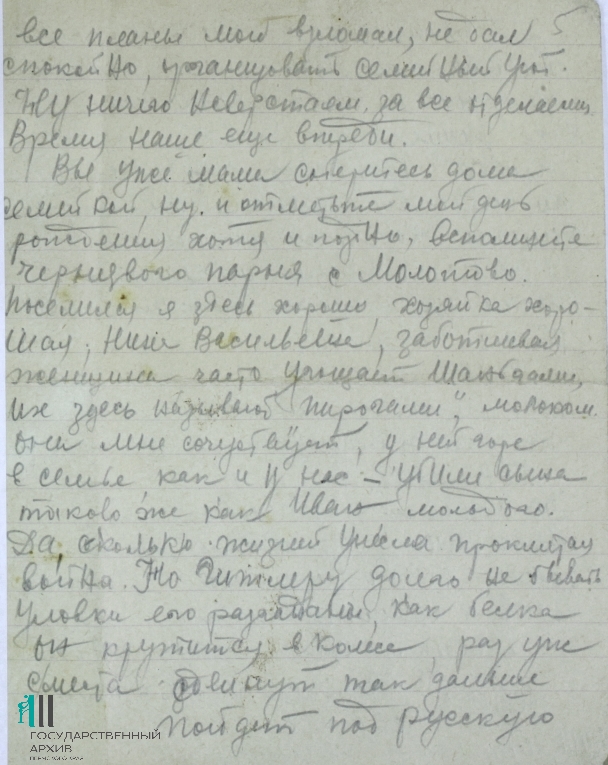 все планы мои взломал, не дал 5
спокойно, организовать семейный уют.
Ну ничего наверстаем, за все отделаем
Время наше еще впереди.
Вы уже мама соберитесь дома
семейкой, ну. и отметьте мой день
рождения хотя и поздно, вспомните
чернявого парня с Молотово.
Поселился я здесь хорошо хозяйка хоро-
шая, Нина Васильевна, заботливая
женщина часто угощает шаньгами,
их здесь называют "пирогами", молоком.
она мне сочувствует, у ней горе
в семье как и у нас – убили сына
такого же как Иван молодого.
Да, сколько жизней унесла проклятая
война. Но Гитлеру долго не бывать
уловки его разгаданы, как белка
он крутится в колесе раз уж
с места сдвинут так дальше
пойдет под русскую
ГОСУДАРСТВЕННЫЙ
АРХИВ
ПЕРМСКОГО КРАЯ